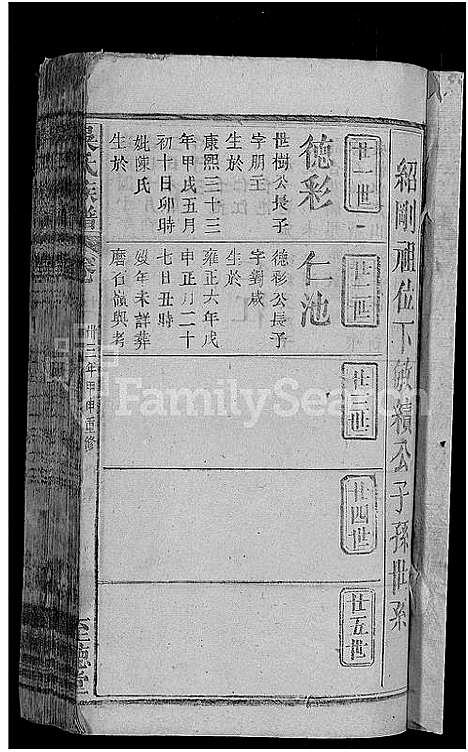 紹剛祖位下敏績公子孫世系
廿一世
德彩
世樹公長子
字朋王
生於
康熙三十三
年甲戌五月
初十日卯時
妣陳氏
生於
廿二世
仁池
德彩公長子
字對咸
生於
雍正六年戊
申正月二十
七日丑時
歿年未詳葬
磨石嶺與考
廿三世
廿四世
廿五世
吳氏族譜
卅三年甲申重修
至德堂
FamilySearch